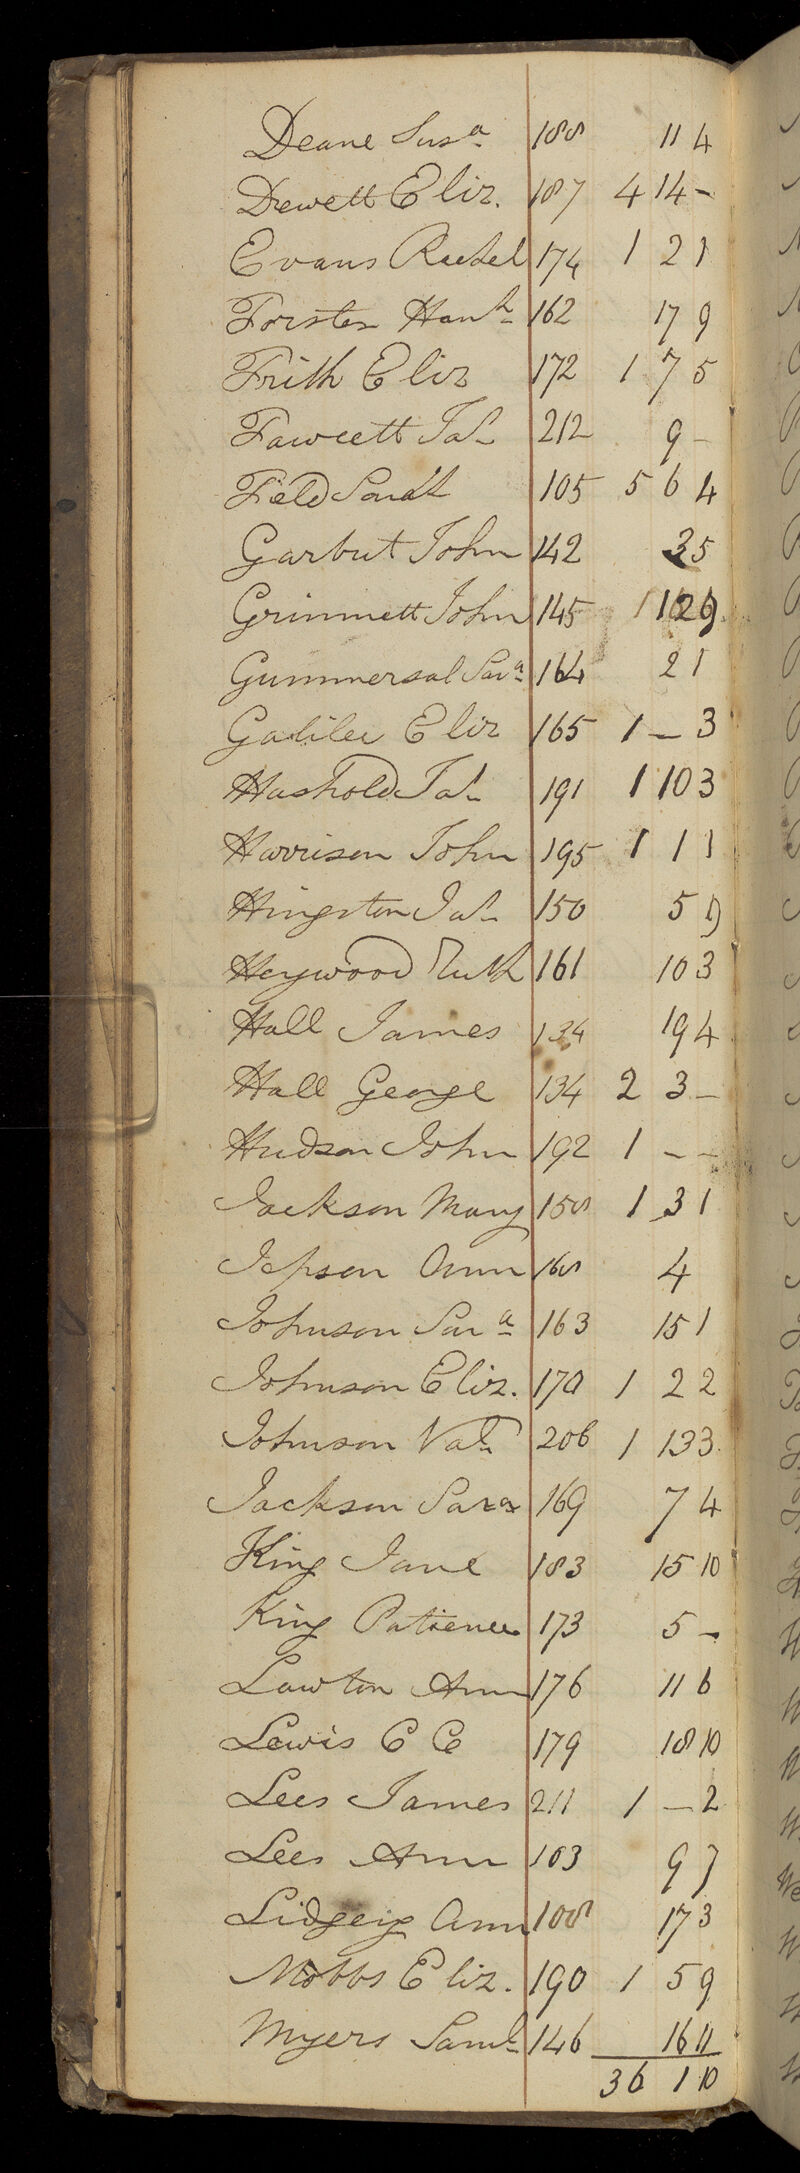 Deane Susa 188 11 4
Drewett Eliz. 187 4 14 -
Evans Rachel 174 1 2 1
Forster Hanh 162 17 9
Frith Eliz 172 1 7 5
Fawcett Jas 212 9 -
Field Saml 105 5 6 4
Garbut John 142 3 5
Grimmett John 145 1
Gummersal Sara 164 2 1
Galilee Eliz 165 1 - 3
Hashold Jas 191 1 10 3
Harrison John 195 1 1 1
Hingston Jas 150 5
Heywood Ruth 161 10 3
Hall James 134 19 4
Hall George 134 2 3 -
Hudson John 192 1 - -
Jackson Mary 158 1 3 1
Jepson Ann 168 4
Johnson Sara 163 15 1
Johnson Eliz. 170 1 2 2
Johnson 206 1 13 3
Jackson Sara 169 7 4
King Jane 183 15 10
King Patience 173 5 -
Lawton Ann 176 11 6
Lewis C C 179 18 10
Lees James 211 1 - 2
Lees Ann 103 9 7
Ann 108 17 3
Mobbs Eliz. 190 1 5 9
Myers Saml 146 16 11
36 1 10